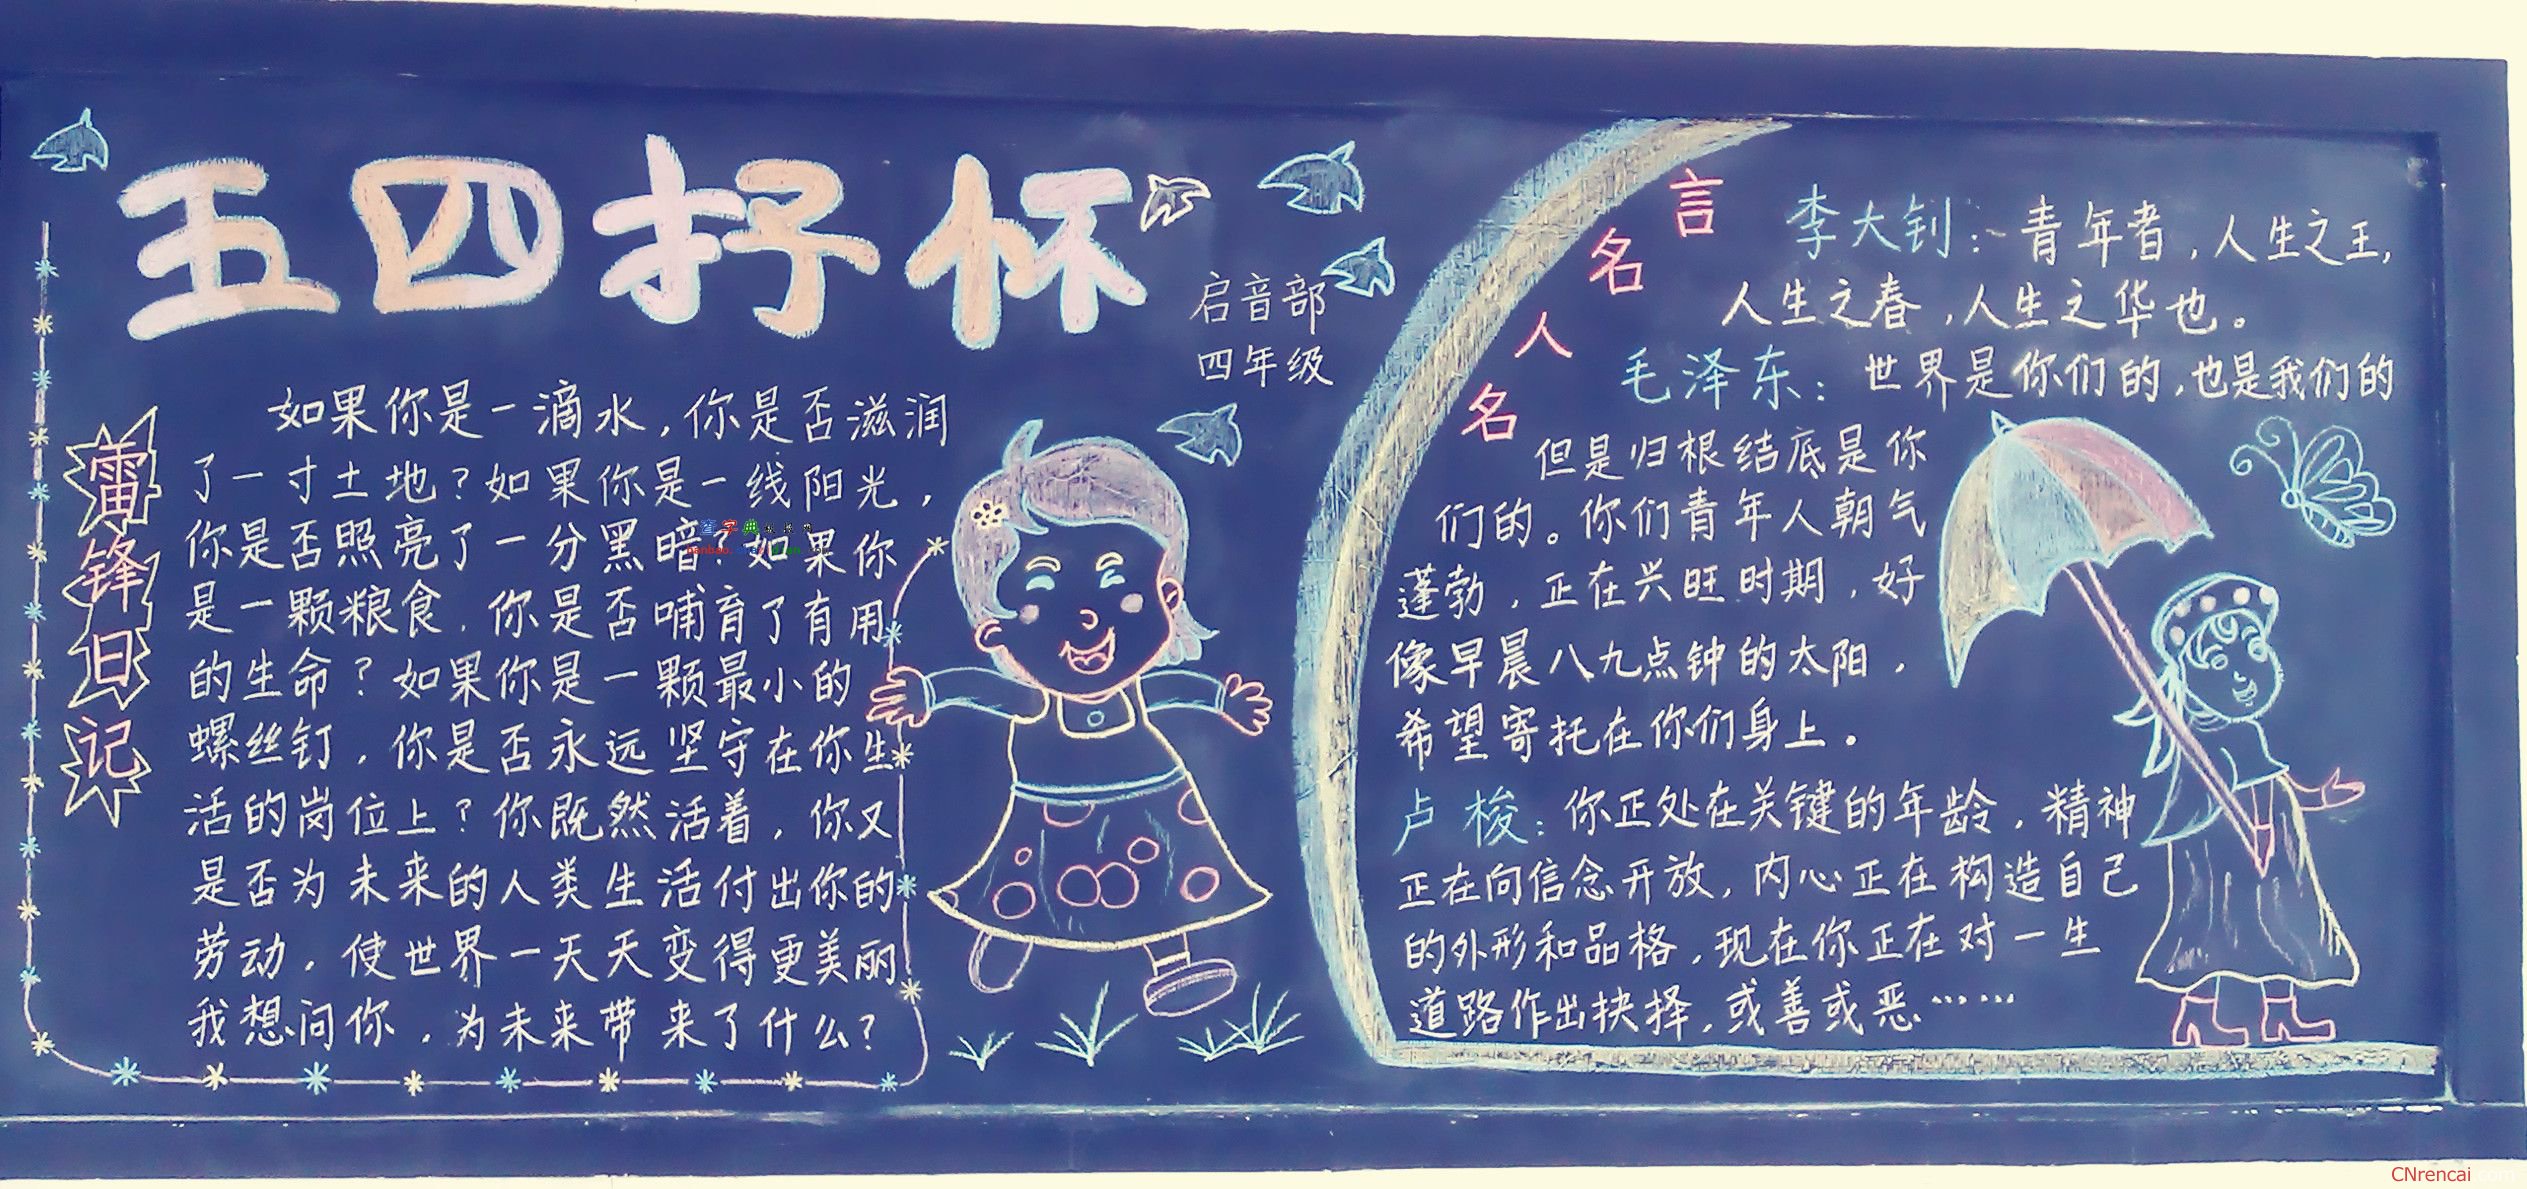 五四抒怀
启音部
四年级
雷锋日记
如果你是一滴水，你是否滋润
了一寸土地？如果你是一线阳光，
你是否照亮了一分黑暗？如果你
是一颗粮食，你是否哺育了有用
的生命？如果你是一颗最小的
螺丝钉，你是否永远坚守在你生
活的岗位上？你既然活着，你又
是否为未来的人类生活付出你的
劳动，使世界一天天变得更美丽
我想问你，为未来带来了什么？
名人名言
李大钊：青年者，人生之王，
人生之春，人生之华也。
毛泽东：世界是你们的，也是我们的
但是归根结底是你
们的。你们青年人朝气
蓬勃，正在兴旺时期，好
像早晨八九点钟的太阳，
希望寄托在你们身上。
卢梭：你正处在关键的年龄，精神
正在向信念开放，内心正在构造自己
的外形和品格，现在你正在对一生
道路作出抉择，或善或恶……
CNrencai.com